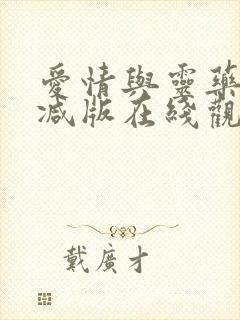 愛情與靈藥
減版在綫觀
戴廣才